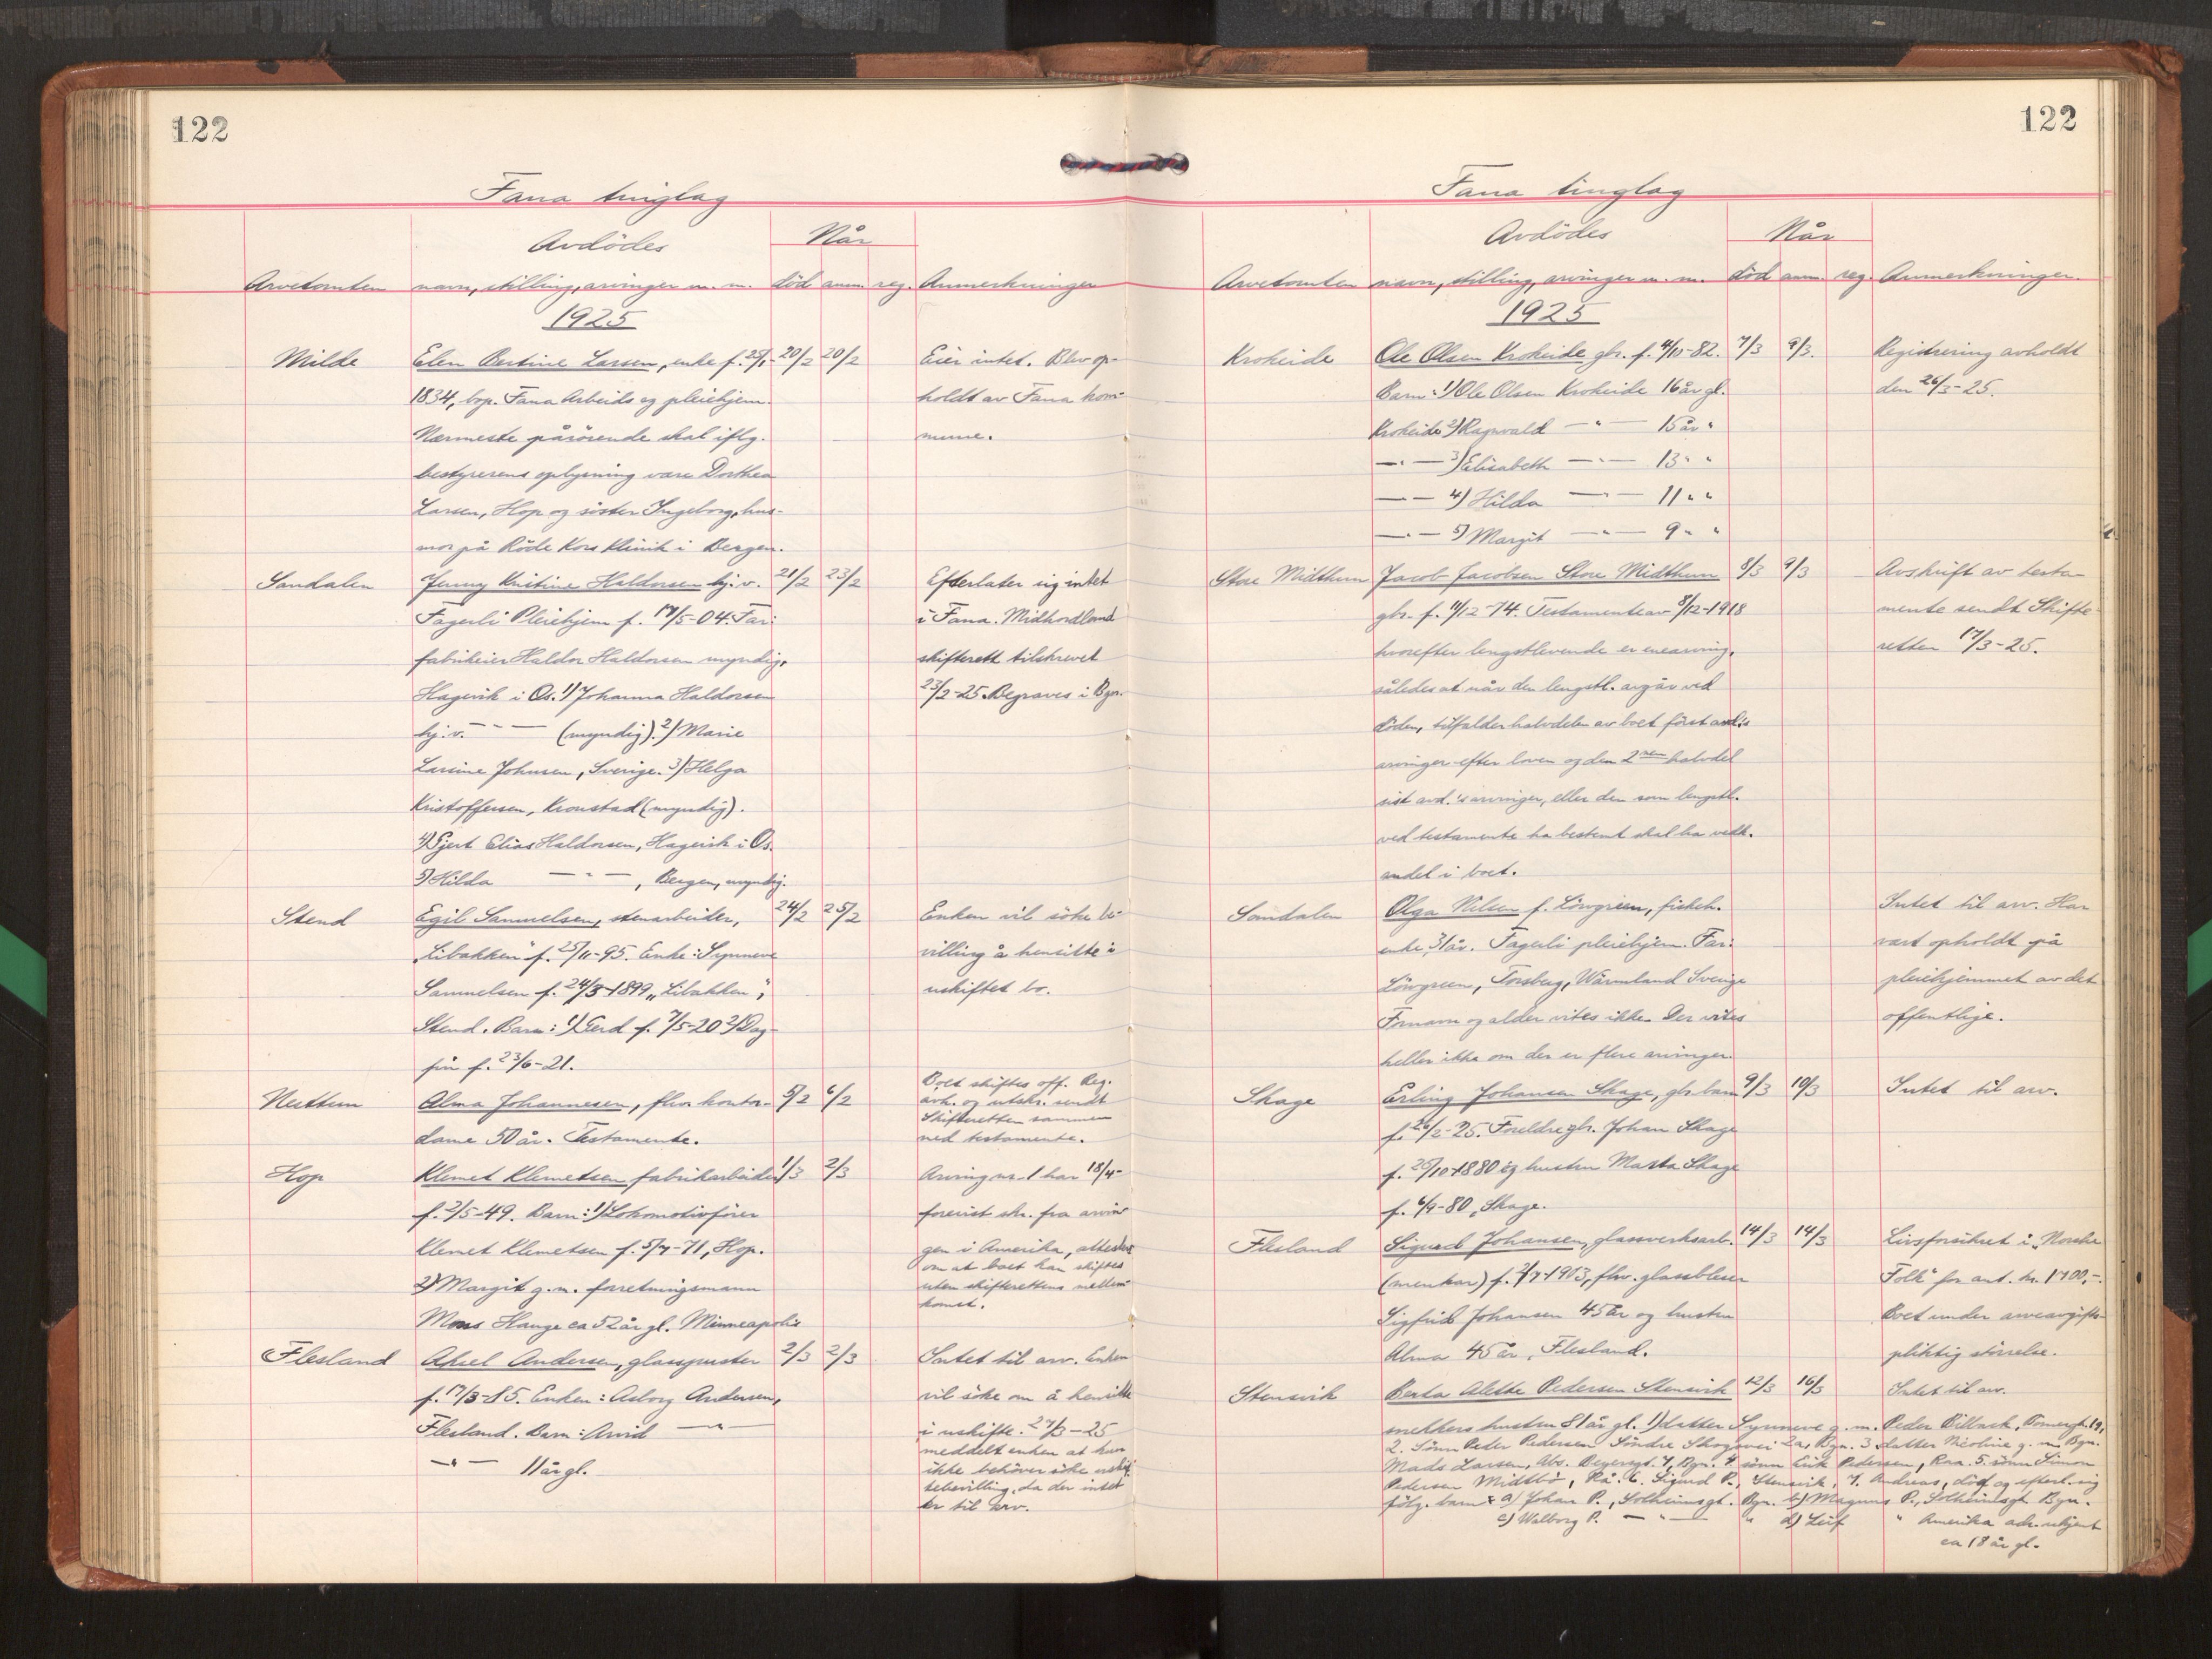 122
Fana tinglag
Avdödes
Når
Arvetomten navn, stilling, arvinger m. m. död anm. reg. Anmerkninger
1925
Milde Elen Bertine Larsen, enke f. 25/1- 20/2 20/2 Eier intet. Blev op-
1834, bop. Fana Arbeids og pleiehjem. holdt av Fana kom-
Nærmeste pårörende skal iflg. mune.
bestyrerens oplysning være Dorthea
Larsen, Hop og söster Ingeborg, hus-
mor på Röde Kors Klinik i Bergen.
Sandalen Jenny Kristine Haldorsen hj. v. 21/2 23/2 Efterlater sig intet
Fagerli Pleiehjem f. 17/5-04. Far: i Fana. Midhordland
fabrikeier Haldor Haldorsen myndig, skifterett tilskrevet
Hagevik i Os. 1) Johanna Haldorsen 23/2-25. Begraves i Bgn.
hj. v. — " — (myndig). 2) Marie
Larsine Johnsen, Sverige. 3) Helga
Kristoffersen, Kronstad (myndig).
4) Gjert Elias Haldorsen, Hagevik i Os.
5) Hilda — " —, Bergen, myndig.
Stend Egil Samuelsen, stenarbeider, 24/2 25/2 Enken vil söke be-
"Libakken" f. 25/11-95. Enke: Synneve villing å hensitte i
Samuelsen f. 24/3-1899 "Libakken", uskiftet bo.
Stend. Barn: 1) Gerd f. 7/5-20 2) Dag-
fin f. 23/6-21.
Nesttun Alma Johannesen, fhv. kontor- 5/2 6/2 Boet skiftes off. Reg.
avh. og utskr. sendt
Skifteretten sammen
dame 50 år. Testamente. med testamente.
Hop Klemet Klemetsen fabrikarbeider 1/3 2/3 Arving nr. 1 har 18/4-
f. 2/5-49. Barn: 1) Lokomotivförer forevist skr. fra arvin-
Klemet Klemetsen f. 5/7-71, Hop. gen i Amerika, attester
om at boet kan skiftes
2) Margit g. m. forretningsmann uten skifterettens mellem-
komst.
Mons Hauge ca 52 år gl. Minneapolis
Flesland Aksel Andersen, glasspuster 2/3 2/3 Intet til arv. Enken
f. 17/3-85. Enken: Asborg Andersen, vil söke om å hensitte
Flesland. Barn: Arvid — " — i uskifte. 27/3-25
meddelt enken at hun
— " — 11 år gl. ikke behöver söke uskif-
tebevilling, da der intet
er til arv.
122
Fana tinglag
Avdödes
Når
Arvetomten navn, stilling, arvinger m. m. död anm. reg. Anmerkninger.
1925
Krokeide Ole Olsen Krokeide gbr. f. 4/10-82. 7/3 9/3. Registrering avholdt
Barn: 1) Ole Olsen Krokeide 16 år gl. den 26/3-25.
Krokeide 2) Ragnvald — " — 15 år "
— " — 3) Elisabeth — " — 13 " "
— " — 4) Hilda — " — 11 " "
— " — 5) Margit — " — 9 " "
Store Midthun Jacob Jacobsen Store Midthun 8/3 9/3 Avskrift av testa-
gbr. f. 11/12-74. Testamente av 8/12-1918 mente sendt Skifte-
hvorefter lengstlevende er enearving, retten 17/3-25.
således at når den lengstl. avgår ved
döden, tilfalder halvdelen av boet först avd.'s
arvinger efter loven og den 2nen halvdel
sist avd.'s arvinger, eller den som lengstl.
ved testamente ha bestemt skal ha vedk.
andel i boet.
Sandalen Olga Nilsen f. Lövgreen, fiskeh. Intet til arv. Har
enke, 31 år. Fagerli pleiehjem. Far: vært opholdt på
Lövgreen, Torsberg, Wärmland Sverige pleiehjemmet av det
Fornavn og alder vites ikke. Der vites offentlige.
heller ikke om der er flere arvinger.
Skage Erling Johansen Skage, gbr. barn 9/3 10/3 Intet til arv.
f. 26/2-25. Foreldre gbr. Johan Skage
f. 25/10-1880 og hustru Marta Skage
f. 6/9-80, Skage.
Flesland Sigurd Johansen, glassverksarb. 14/3 14/3 Livsforsikret i "Norske
(ungkar) f. 2/7-1903, fhv. glassbleser Folk" for ant. kr. 1700,-.
Sigfrid Johansen 45 år og hustru Boet under arveavgifts-
Alma 45 år, Flesland. pliktig störrelse.
Stensvik Berta Alette Pedersen Stensvik 12/3 16/3 Intet til arv.
snekkers hustru 81 år gl. 1) datter Synneve g. m. Peder Bilback, Tömergt. 19,
2. Sönn Peder Pedersen Söndre Skogveien 2a, Bgn. 3 datter Nicoline g. m. Byn.
Mads Larsen, Abs. Beyersgt. 7, Bgn. 4 sönn Erik Pedersen, Raa. 5. sönn Simon
Pedersen Midtbö, Rå. 6. Sigurd P., Stensvik, 7. Andreas, död og efterl. sig
fölg. barn: a) Johan P., Solheimsgt. Bgn. b) Magnus P., Solheimsgt. Bgn.
c) Walborg P. — " — " d) Leif " Amerika adr. ukjent
ca 18 år gl.